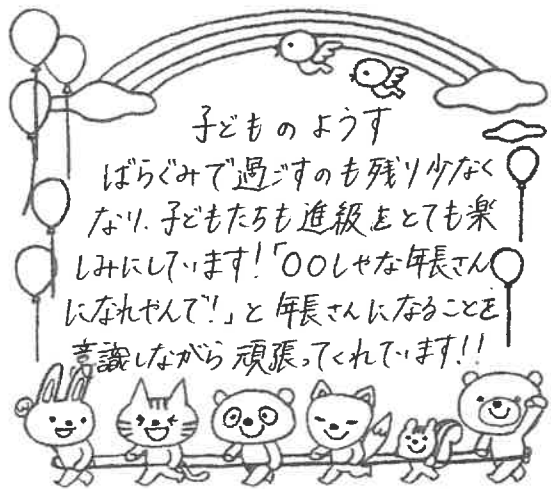 子どものようす
ばらぐみで過ごすのも残り少なく
なり、子どもたちも進級をとても楽
しみにしています!「○○しやな年長さん
になれやんで!」と年長さんになることを
意識しながら頑張ってくれています!!